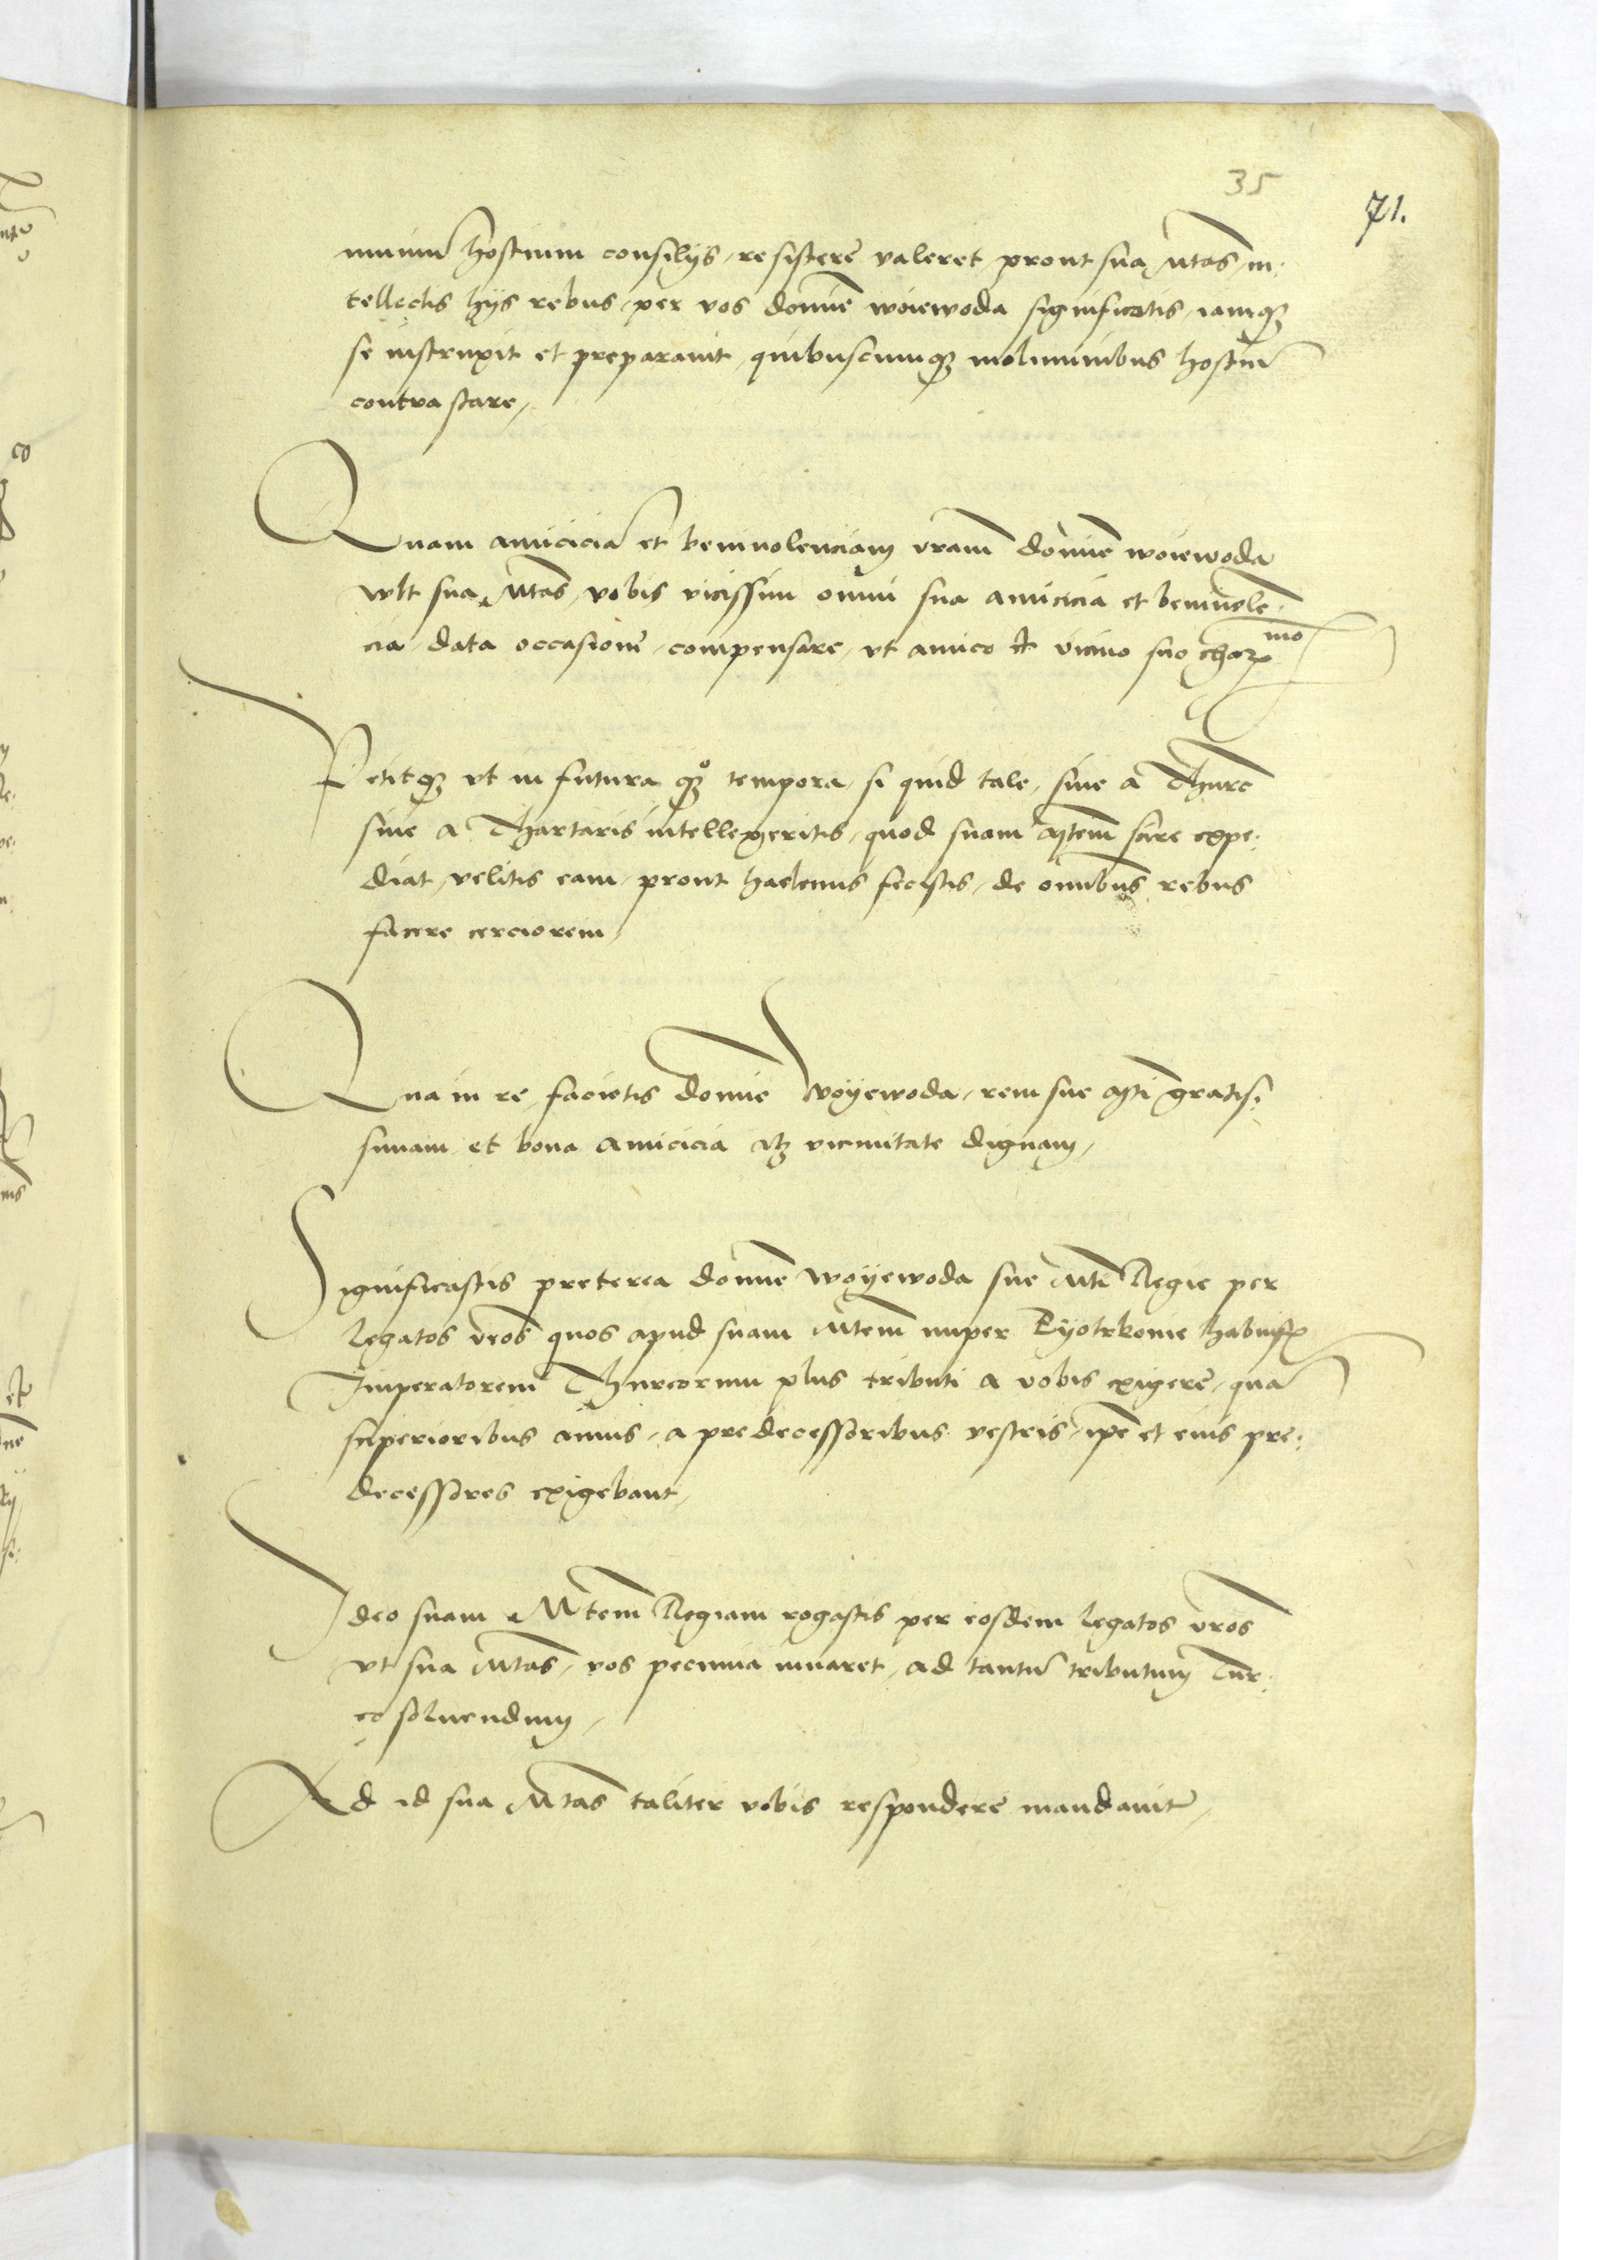 35
71.
muniū hostium consilijs, resistere valeret, prout sua Mtas, in:
tellectis hijs rebus, per vos domine woiewoda significatis, iamq3
se instruxit et preparauit, quibuscumq3 moliminibus hostiū
contrastare,
Quam amiciciā et beniuolenciam vram̄ domine woiewoda
vult sua Mtas, vobis vicissim omni sua amicicia et beniuolē:
cia, data occasione, compensare, vt amico et vicino suo charmo
Petitq3 vt in futura q3o tempora, si quid tale, siue a Thurc
siue a Thartaris intellexeritis, quod suam Mtem scire expe:
diat, velitis eam, prout hactenus fecistis, de omnibus rebus
facere cerciorem,
Qua in re facietis domine Woyewoda, rem sue Mti gratis:
simam et bona amicicia atq3 vicinitate dignam,
Significastis preterea domine woyewoda sue Mti Regie per
legatos vros quos apud suam Mtem nuper Pyotrkouie habuistis
Imperatorem Thurcorum plus tributi a vobis exigere, quā
superioribus annis, a predecessoribus vestris, ipē et eius pre:
decessores exigebant,
Ideo suam Mtem Regiam rogastis per eosdem legatos vros
vt sua Mtas, vos pecunia iuuaret, ad tantū tributum Tur:
co soluendum,
Ad id sua Mtas taliter vobis respondere mandauit,